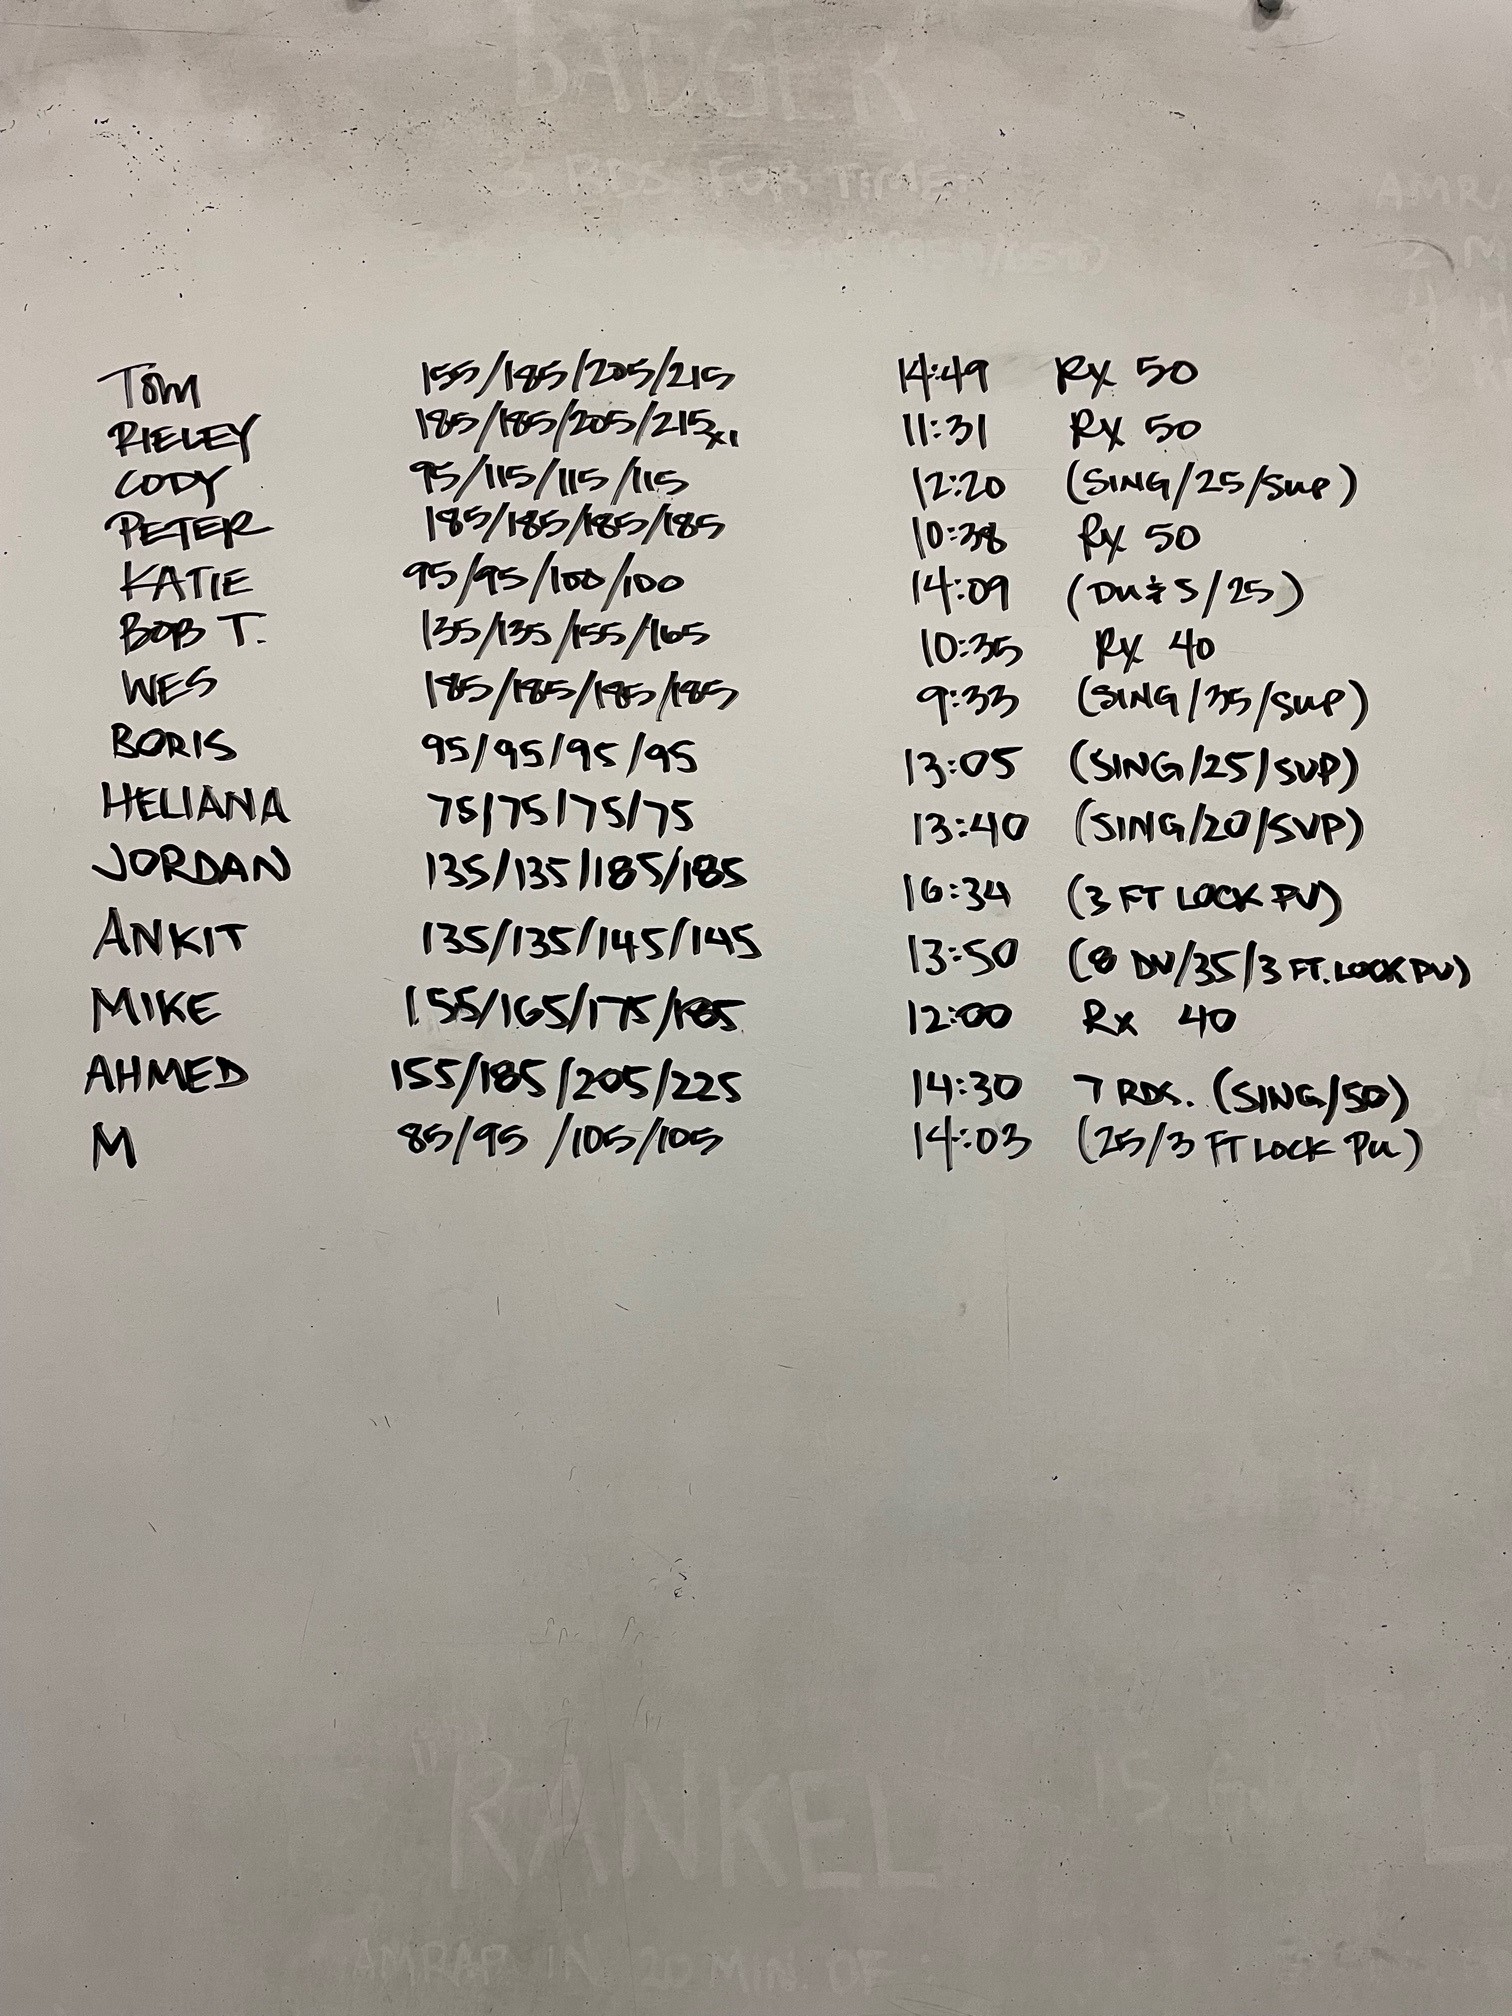 BADGER
3 RDS FOR TIME:
AMRA
2 M
4 H
Tom 155/185/205/215 14:49 Rx 50
RIELEY 185/185/205/215x1 11:31 Rx 50
CODY 95/115/115/115 12:20 (SING/25/SUP)
PETER 185/185/185/185 10:38 Rx 50
KATIE 95/95/100/100 14:09 (DU & S/25)
BOB T. 135/135/155/165 10:35 Rx 40
WES 185/185/185/185 9:33 (SING/35/SUP)
BORIS 95/95/95/95 13:05 (SING/25/SUP)
HELIANA 75/75/75/75 13:40 (SING/20/SUP)
JORDAN 135/135/185/185 16:34 (3 FT LOCK PU)
ANKIT 135/135/145/145 13:50 (8 DU/35/3 FT. LOCK PU)
MIKE 155/165/175/185 12:00 Rx 40
AHMED 155/185/205/225 14:30 7 RDS. (SING/50)
M 85/95/105/105 14:03 (25/3 FT LOCK PU)
"RANKEL" 15
AMRAP IN 20 MIN. OF: